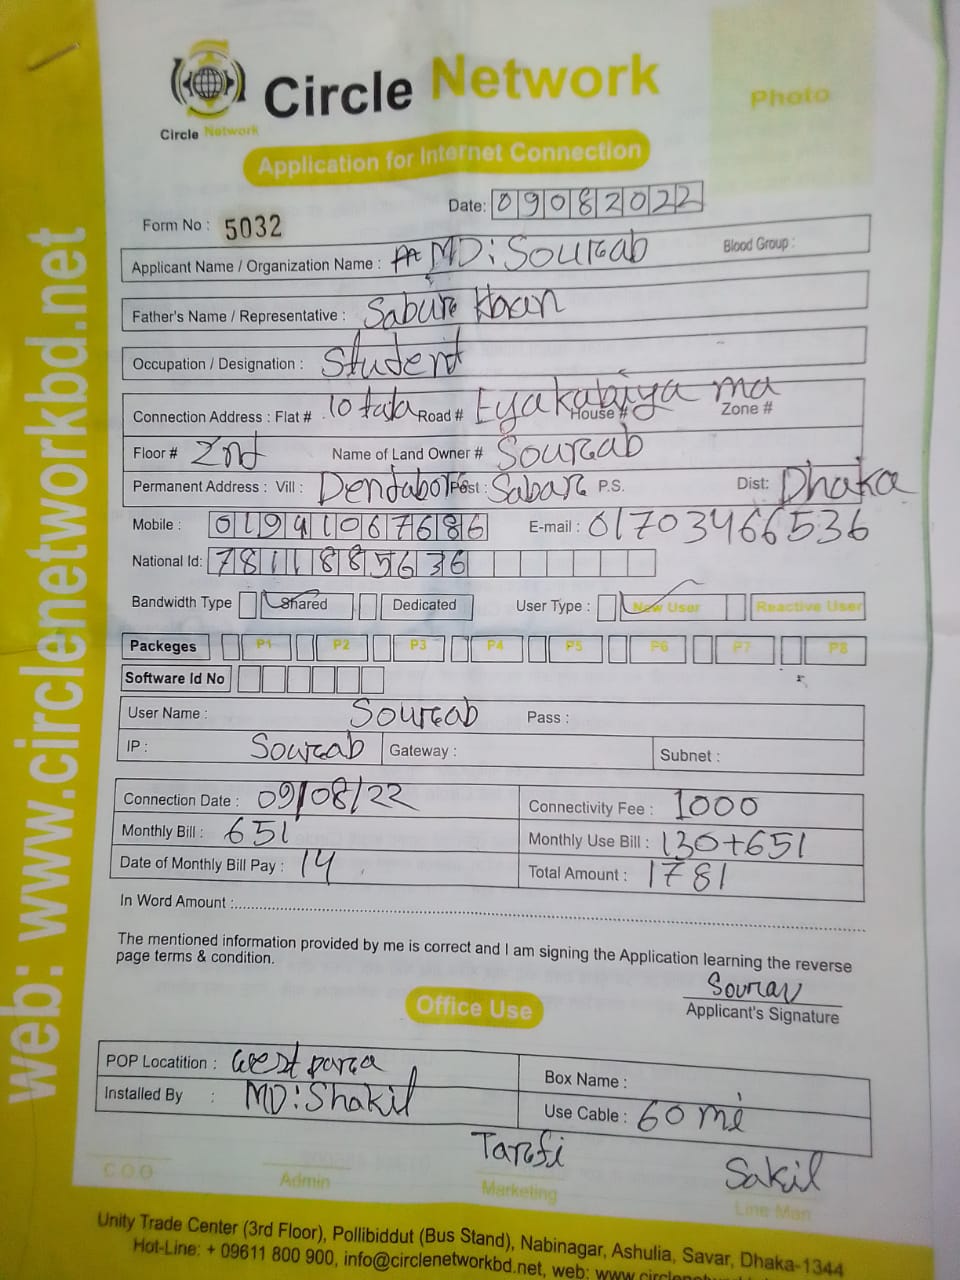 Circle Network
Circle Network
Photo
Application for Internet Connection
Date: 09082022
Form No : 5032
Applicant Name / Organization Name : MD: Sourab Blood Group :
Father's Name / Representative : Sabur khan
Occupation / Designation : Student
Connection Address : Flat # 10 tala Road # Eyakabiya House # ma Zone #
Floor # 2nd Name of Land Owner # Sourab
Permanent Address : Vill : Dendabor Post : Sabar P.S. Dist: Dhaka
Mobile : 01941067686 E-mail : 01703466536
National Id: 7811885636
Bandwidth Type Shared Dedicated User Type : New User Reactive User
Packeges P1 P2 P3 P4 P5 P6 P7 P8
Software Id No
User Name : Sourab Pass :
IP : Sourab Gateway : Subnet :
Connection Date : 09/08/22 Connectivity Fee : 1000
Monthly Bill : 651 Monthly Use Bill : 130+651
Date of Monthly Bill Pay : 14 Total Amount : 1781
In Word Amount :
The mentioned information provided by me is correct and I am signing the Application learning the reverse
page terms & condition.
Sourav
Applicant's Signature
Office Use
POP Locatition : West para Box Name :
Installed By : MD: Shakil Use Cable : 60 mi
Tarefi Sakil
C.O.O Admin Marketing Line Man
Unity Trade Center (3rd Floor), Pollibiddut (Bus Stand), Nabinagar, Ashulia, Savar, Dhaka-1344
Hot-Line: + 09611 800 900, info@circlenetworkbd.net, web: www.circlenetwork
web: www.circlenetworkbd.net